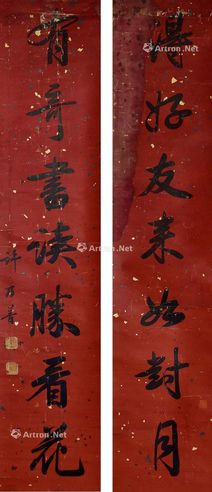 得好友來如對月
有奇書讀勝看花
許乃普
Artron.Net
Artron.Net
Artron.Net
Artron.Net